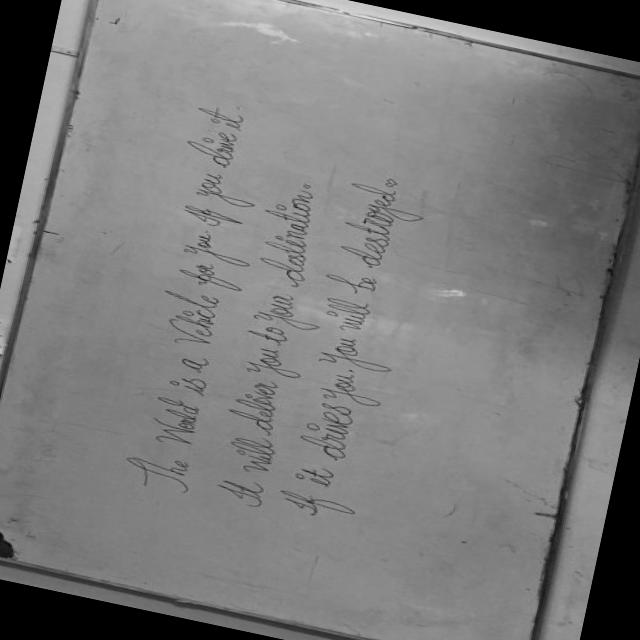 The World is a Vehicle for you if you drive it
It will deliver you to your destination.
If it drives you, You will be destroyed.